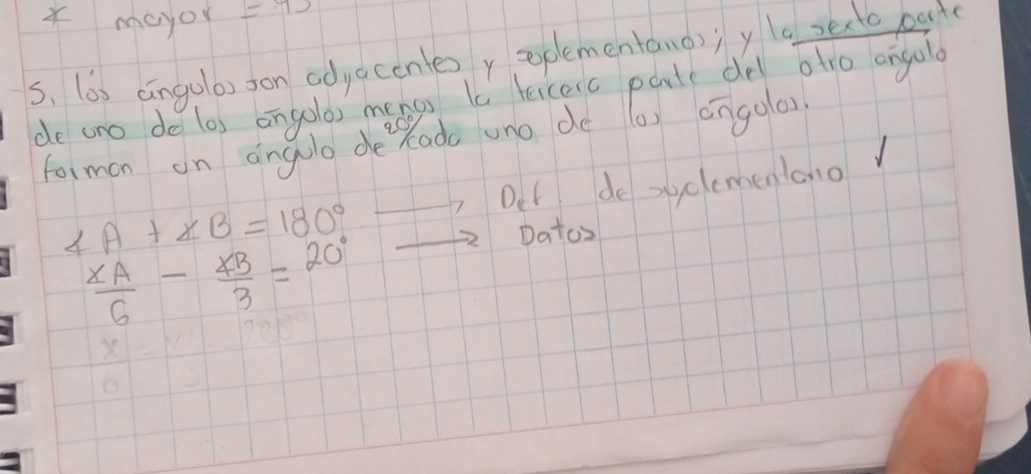 * mayor = 
5. los ángulos son adyacentes y suplementarios; y la sexta parte
de uno de los ángulos menos la tercera parte del otro ángulo
forman un ángulo de 20° cada uno de los ángulos.
∡A + ∡B = 180° → Def. de suplementario ✓
∡A/6 - ∡B/3 = 20° → Datos